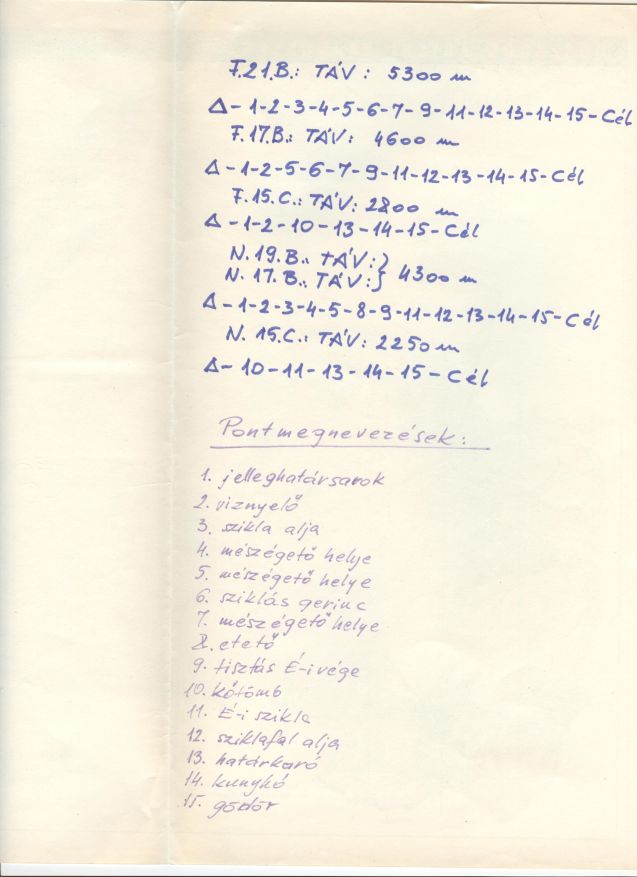 F.21.B.: TÁV: 5300 m
Δ-1-2-3-4-5-6-7-9-11-12-13-14-15-Cél
F.17.B.: TÁV: 4600 m
Δ-1-2-5-6-7-9-11-12-13-14-15-Cél
F.15.C.: TÁV: 2800 m
Δ-1-2-10-13-14-15-Cél
N.19.B.: TÁV:}
N.17.B.: TÁV:} 4300 m
Δ-1-2-3-4-5-8-9-11-12-13-14-15-Cél
N.15.C.: TÁV: 2250 m
Δ-10-11-13-14-15-Cél
Pontmegnevezések:
1. jelleghatársarok
2. viznyelő
3. szikla alja
4. mészégető helye
5. mészégető helye
6. sziklás gerinc
7. mészégető helye
8. etető
9. tisztás É-i vége
10. kőtömb
11. É-i szikla
12. sziklafal alja
13. határkaró
14. kunyhó
15. gödör